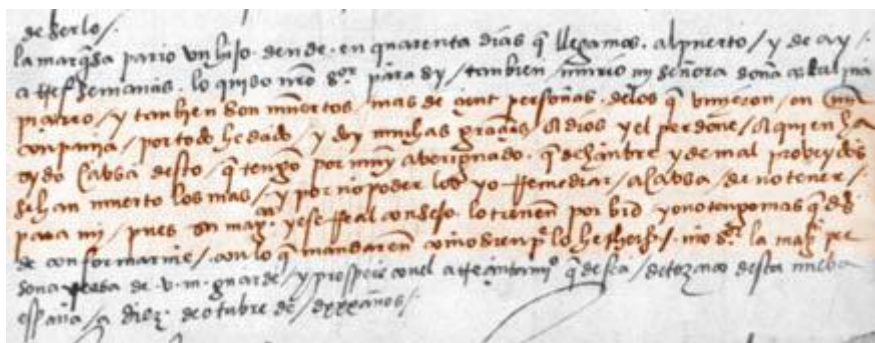 de serlo /
la marq̃sa pario un hijo. dende. en quarenta dias q̃ llegamos. al puerto / y de ay /
a tres semanas. lo quiso nr̃o s.or para sy / tanbien murio mi señora doña catalina
piçarro / y tanbien son muertos. mas de çient personas. delos q̃ vinieron. en mi
conpañia / por todo he dado / y doy muchas graçias / a dios y el perdone / a quien ha
sydo cabsa desto / q̃ tengo por muy aberiguado. q̃ de hanbre y de mal probeydos
se han muerto los mas / y por no poder los yo rremediar / a cabsa / de no tener /
para mi / pues su mag. y este rreal consejo. lo tienen por biē yo no tengo mas q̃ dzr̃
de conformarme / con lo q̃ mandaren como sienp̃ lo he hecho / nr̃o s.or la
persona de v. m. guarde / y prospere con el acreçentami.o q̃ desea / de tezcuco desta nueba
españa / a diez de otubre de / dxxx años /